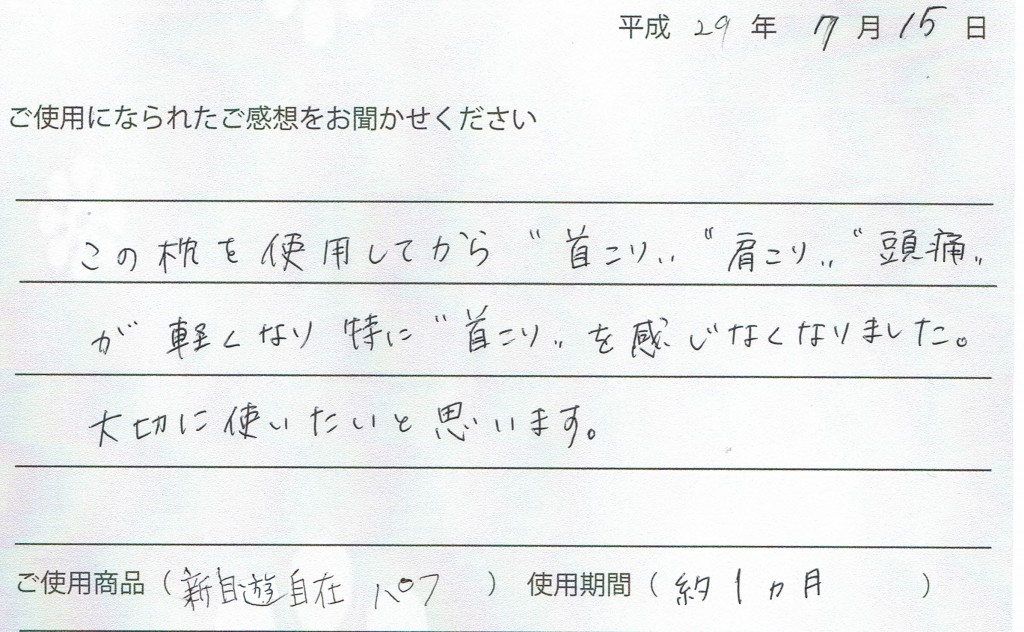 平成 29 年 7 月 15 日
ご使用になられたご感想をお聞かせください
この枕を使用してから〝首こり〟〝肩こり〟〝頭痛〟
が軽くなり特に〝首こり〟を感じなくなりました。
大切に使いたいと思います。
ご使用商品（新自遊自在 パフ ） 使用期間（約1ヵ月 ）